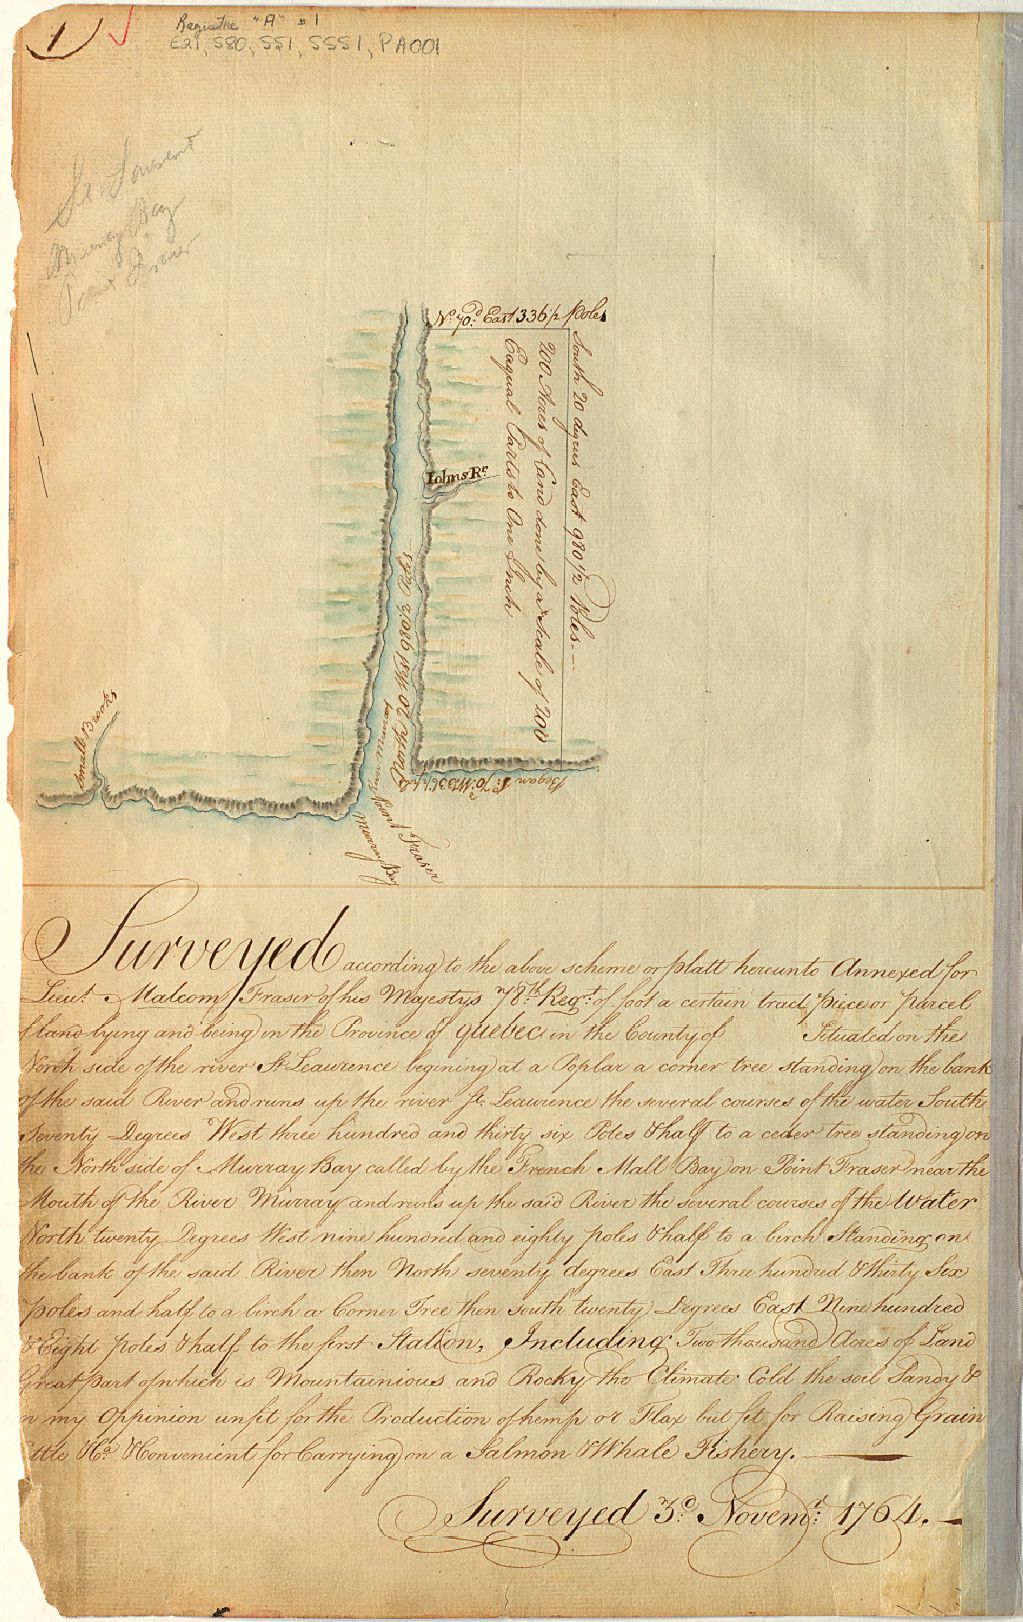 1
Registre "A" #1
E21, S80, SS1, SSS1, PA001
St Lawrent
Murray Bay
Point Fraser
No. 70d. East 336 1/2 Poles
South 20 degrees East 980 1/2 Poles.
200 Acres of Land done by a Scale of 200
Eaqual Parts to One Inch
Iohns Rr.
North 20 West 980 1/2 Poles
Smalle Brooks
Began
Point Fraser
Murray Bay
Surveyed according to the above scheme or platt hereunto Annexed for
Lieut. Malcom Fraser of his Majestys 78th Regt. of foot a certain tract, piece or parcel
of land lying and being in the Province of quebec in the County of Situated on the
North side of the river St. Leawrence begining at a Poplar a corner tree standing on the bank
of the said River and runs up the river St. Leawrence the several courses of the water South
Seventy Degrees West three hundred and thirty six Poles & half to a ceder tree standing on
the North side of Murray Bay called by the French Mall Bay on Point Fraser near the
Mouth of the River Murray and runs up the said River the several courses of the water
North twenty Degrees West nine hundred and eighty poles & half to a birch Standing on
the bank of the said River then North seventy degrees East Three hundred & thirty Six
poles and half to a birch a Corner Tree then south twenty Degrees East Nine hundred
& Eight poles & half to the first Station, Including Two thousand Acres of Land
Great part of which is Mountainious and Rocky the Climate Cold the soil Sandy &
in my Oppinion unfit for the Production of hemp or Flax but fit for Raising Grain
Cattle &Ca. & Convenient for Carrying on a Salmon & Whale Fishery.
Surveyed 3d. Novemr: 1764.